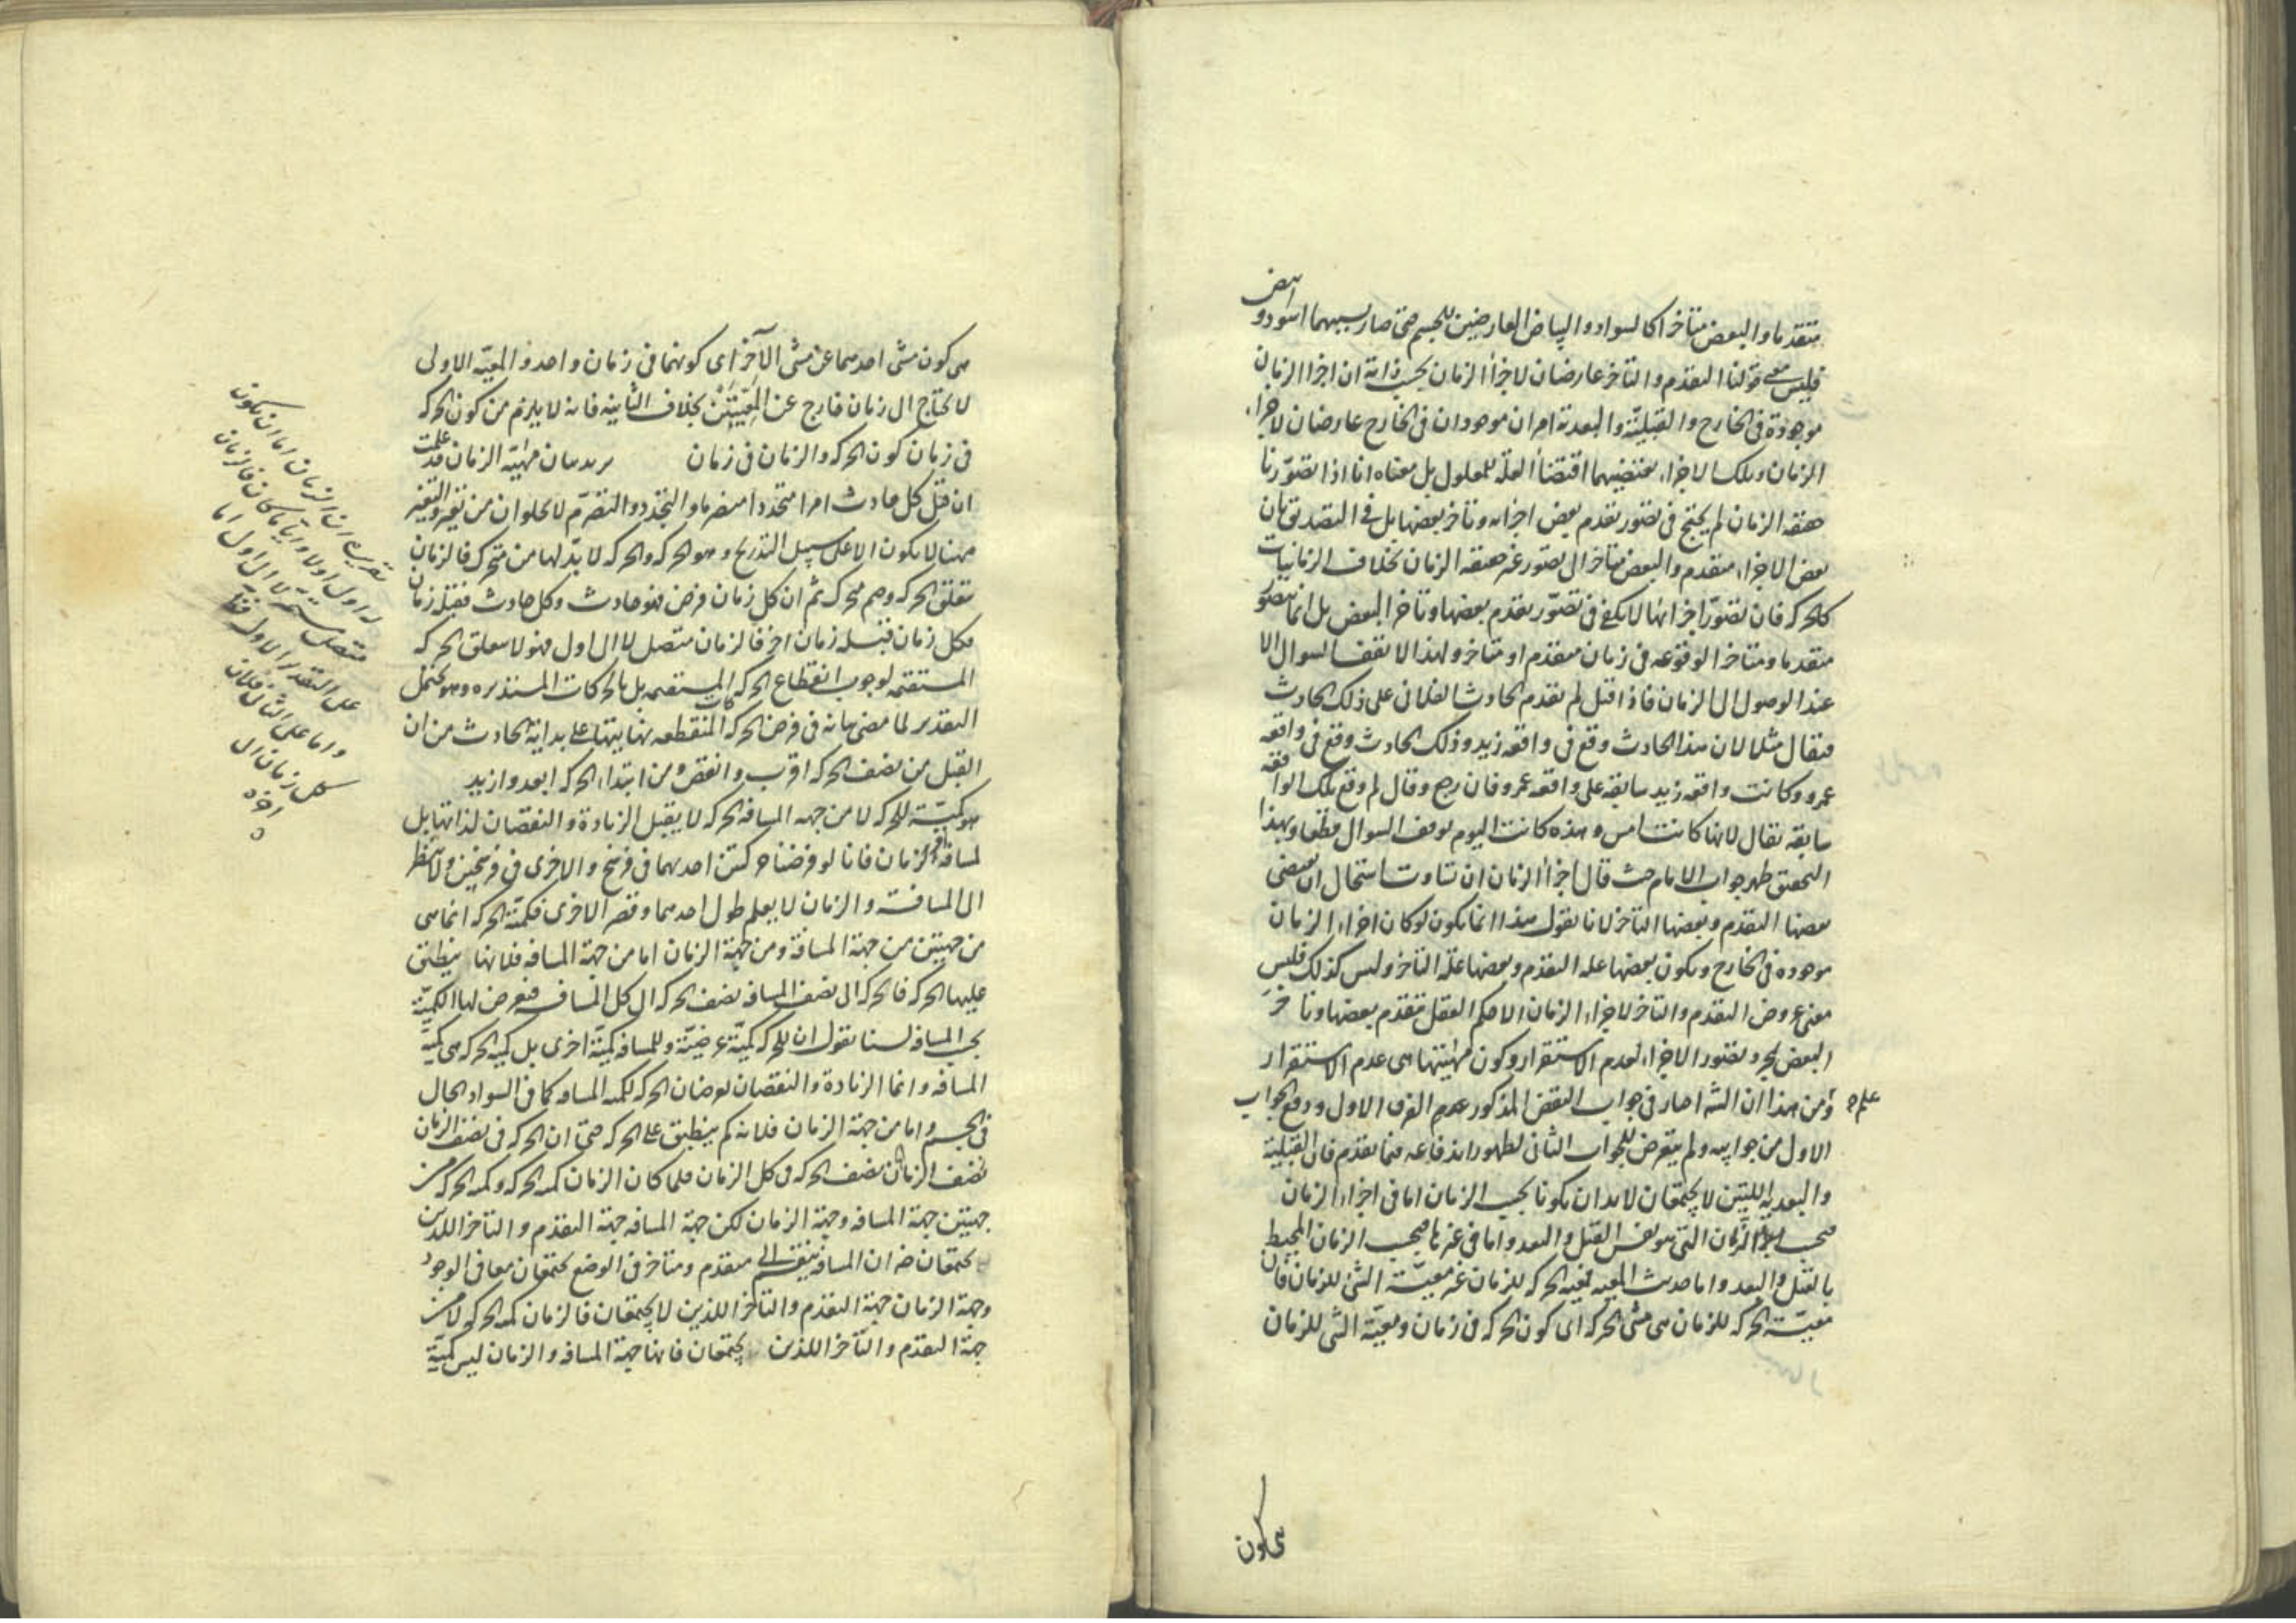 متقدما والبعض متأخرا كالسواد والبياض العارضين للجسم حتى صار بسببهما اسود و ابيض
فليس معنى قولنا التقدم والتأخر عارضان لاجزاء الزمان بحسب ذاته ان اجزا الزمان
موجودة فى الخارج والقبلية والبعدية امران موجودان فى الخارج عارضان لاجزاء
الزمان وتلك الاجزاء يقتضيهما اقتضاء العلة للمعلول بل معناه انا اذا تصورنا
حقيقة الزمان لم يحتج فى تصور تقدم بعض اجزائه وتأخر بعضها بل فى التصديق بان
بعض الاجزاء متقدم والبعض متاخر الى تصور غير حقيقة الزمان بخلاف الزمانيات
كالحركة فان تصور اجزائها لا يكفى فى تصور تقدم بعضها وتأخر البعض بل انما يتصور
متقدما ومتاخرا لوقوعه فى زمان متقدم او متاخر ولهذا لا يقف السوال الا
عند الوصول الى الزمان فاذا قيل لم تقدم الحادث الفلانى على ذلك الحادث
فيقال مثلا لان هذا الحادث وقع فى واقعة زيد وذلك الحادث وقع فى واقعة
عمرو وكانت واقعة زيد سابقة على واقعة عمرو فان رجع وقال لم وقع تلك الواقعة
سابقة يقال لانها كانت امس وهذه كانت اليوم يوقف السوال قطعا وبهذا
التحقيق ظهر جواب الامام حيث قال اجزاء الزمان ان تساوت استحال ان يقتضى
بعضها التقدم وبعضها التأخر لانا نقول هذا انما يكون لو كان اجزاء الزمان
موجوده فى الخارج ويكون بعضها علة التقدم وبعضها علة التأخر وليس كذلك فليس
معنى عروض التقدم والتأخر لاجزاء الزمان الا حكم العقل بتقدم بعضها وتأخر
البعض بمجرد تصور الاجزاء لعدم الاستقرار وكون مهيتها هى عدم الاستقرار
ومن هذا ان الشه اصار فى جواب النقض المذكور الفرق الاول ودفع الجواب
علم
الاول من جوابيه ولم يتعرض للجواب الثانى لظهور اندفاعه فيما تقدم فان القبلية
والبعدية اللتين لا يجتمعان لابد ان يكونا بحسب الزمان اما فى اجزاء الزمان
فبحسب الزمان التى هو نفس القبل والبعد واما فى غيرها فبحسب الزمان المحيط
بالقبل والبعد واما حديث المعية فمعية الحركة للزمان غير معية الشئ للزمان فان
معية الحركة للزمان هى متى الحركة اى كون الحركة فى زمان ومعية الشئ للزمان
هى كون
هى كون متى احدهما عن متى الآخر اى كونهما فى زمان واحد والمعية الاولى
لا تحتاج الى زمان خارج عن المعيتين بخلاف الثانية فانه لا يلزم من كون الحركة
فى زمان كون الحركة والزمان فى زمان يريد بيان مهية الزمان قد علمت
ان قبل كل حادث امرا متجددا متصرما والتجدد والتصرم لا يخلوان من تغير والتغير
ههنا لا يكون الا على سبيل التدريج وهو الحركة والحركة لا بد لها من متحرك فالزمان
متعلق الحركة وجسم متحرك ثم ان كل زمان فرض فهو حادث وكل حادث فقبله زمان
فكل زمان قبله زمان آخر فالزمان متصل لا الى اول فهو لا يتعلق الحركة
المستقيمة لوجوب انقطاع الحركات المستقيمة بل بالحركات المستديرة وهو يحتمل
التقدير لما مضى بيانه فى فرض الحركة المنقطعة نهايتها على بداية الحادث من ان
القبل من نصف الحركة اقرب وانقص ومن ابتداء الحركة ابعد وازيد
هو كمية للحركة لا من جهة المسافة الحركة لا يقبل الزيادة والنقصان لذاتها بل
لمسافة او الزمان فانا لو فرضنا حركتين احديهما فى فرسخ والاخرى فى فرسخين ولا ننظر
الى المسافة والزمان لا يعلم طول احدهما وقصر الاخرى فكمية الحركة انما هى
من جهتين من جهة المسافة ومن جهة الزمان اما من جهة المسافة فلانها ينطبق
عليها الحركة فالحركة الى نصف المسافة نصف الحركة الى كل المسافة فيعرض لها الكمية
بحسب المسافة لسنا نقول ان للحركة كمية عرضية وللمسافة كمية اخرى بل كمية الحركة هى كمية
المسافة وانما الزيادة والنقصان يعرضان الحركة لكمية المسافة كما فى السواد الحال
فى الجسم واما من جهة الزمان فلانه كم ينطبق على الحركة حتى ان الحركة فى نصف الزمان
نصف الزمان نصف الحركة فى كل الزمان فلما كان الزمان كمية الحركة وكمية الحركة من
جهتين جهة المسافة وجهة الزمان لكن جهة المسافة جهة التقدم والتأخر اللذين
يجتمعان ضه ان المسافة ينقسم الى متقدم ومتأخر فى الوضع يجتمعان معا فى الوجود
وجهة الزمان جهة التقدم والتأخر اللذين لا يجتمعان فالزمان كمية الحركة لا من
جهة التقدم والتأخر اللذين يجتمعان فانها جهة المسافة والزمان ليس كمية
تقريره ان الزمان اما ان يكون
له اول اولا وايا ما كان فالزمان
متصل لا الى اول اما
على التقدير الاول فظ
واما على الثانى فلان
كل زمان الى
اخره